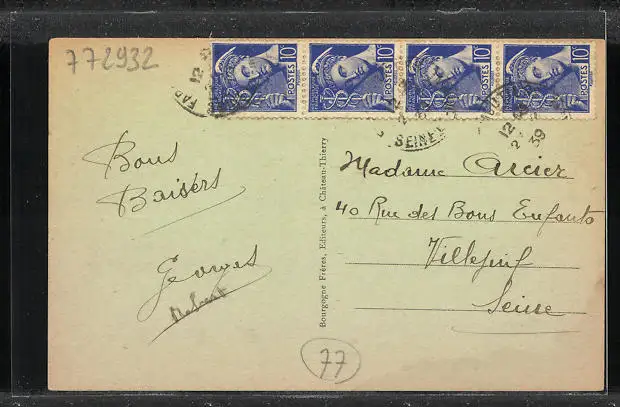 772932
10c POSTES
10c POSTES
10c POSTES
10c POSTES
SEINE
39
Bons
Baisers
Georges
Robert
Bourgogne Frères, Editeurs, à Château-Thierry
Madame Arcier
40 Rue des Bons Enfants
Villejuif
Seine
77